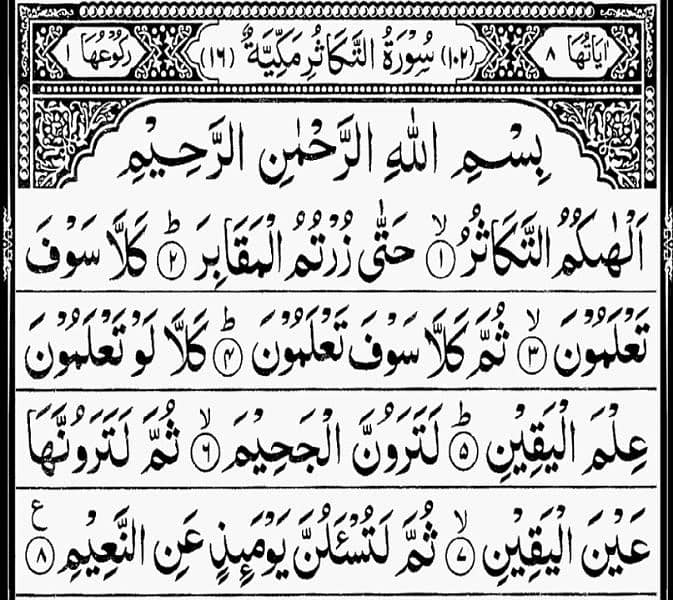 اٰيَاتُهَا ٨ (١٠٢) سُوْرَةُ التَّكَاثُرِ مَكِّيَّةٌ (١٦) رُكُوْعُهَا ١
بِسْمِ اللّٰهِ الرَّحْمٰنِ الرَّحِيْمِ
اَلْهٰىكُمُ التَّكَاثُرُ ۙ﴿١﴾ حَتّٰى زُرْتُمُ الْمَقَابِرَ ؕ﴿٢﴾ كَلَّا سَوْفَ
تَعْلَمُوْنَ ۙ﴿٣﴾ ثُمَّ كَلَّا سَوْفَ تَعْلَمُوْنَ ؕ﴿٤﴾ كَلَّا لَوْ تَعْلَمُوْنَ
عِلْمَ الْيَقِيْنِ ؕ﴿٥﴾ لَتَرَوُنَّ الْجَحِيْمَ ۙ﴿٦﴾ ثُمَّ لَتَرَوُنَّهَا
عَيْنَ الْيَقِيْنِ ۙ﴿٧﴾ ثُمَّ لَتُسْـَٔلُنَّ يَوْمَئِذٍ عَنِ النَّعِيْمِ ﴿٨﴾ ع